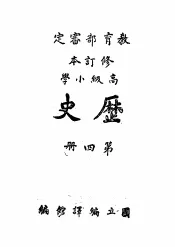 教育部審定
修訂本
高級小學
歷史
第四冊
國立編譯館編